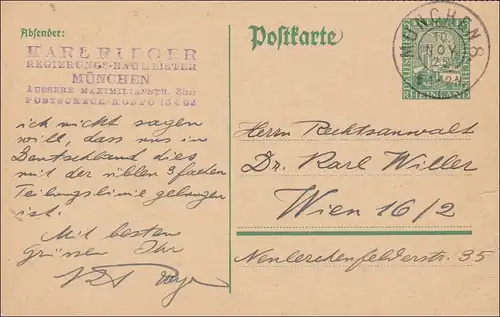 Absender:
KARL RIEGER
REGIERUNGS-BAUMEISTER
MÜNCHEN
ÄUSSERE MAXIMILIANSTR.
POSTSCHECK-KONTO
ich nicht sagen
will, dass uns in
Deutschland dies
mit der üblen 3fachen
Teilungslinie gelungen
ist.
Mit besten
Grüssen Ihr
Postkarte
MÜNCHEN 8
10
NOV
25
RHEINLAND
Herrn Rechtsanwalt
Dr. Karl Willer
Wien 16/2
Neulerchenfelderstr. 35